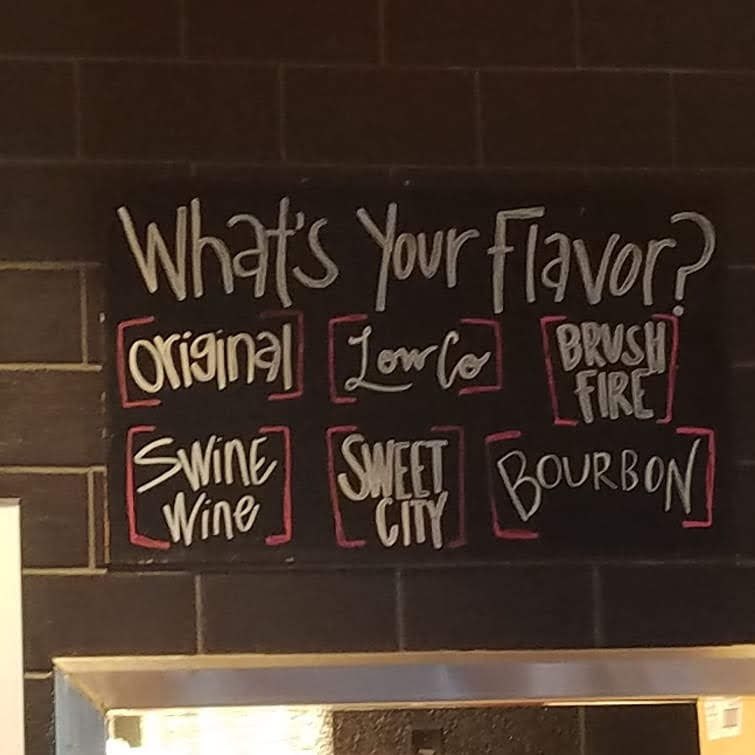 What's Your Flavor?
Original
Low Co
BRUSH
FIRE
SWINE
Wine
SWEET
CITY
BOURBON